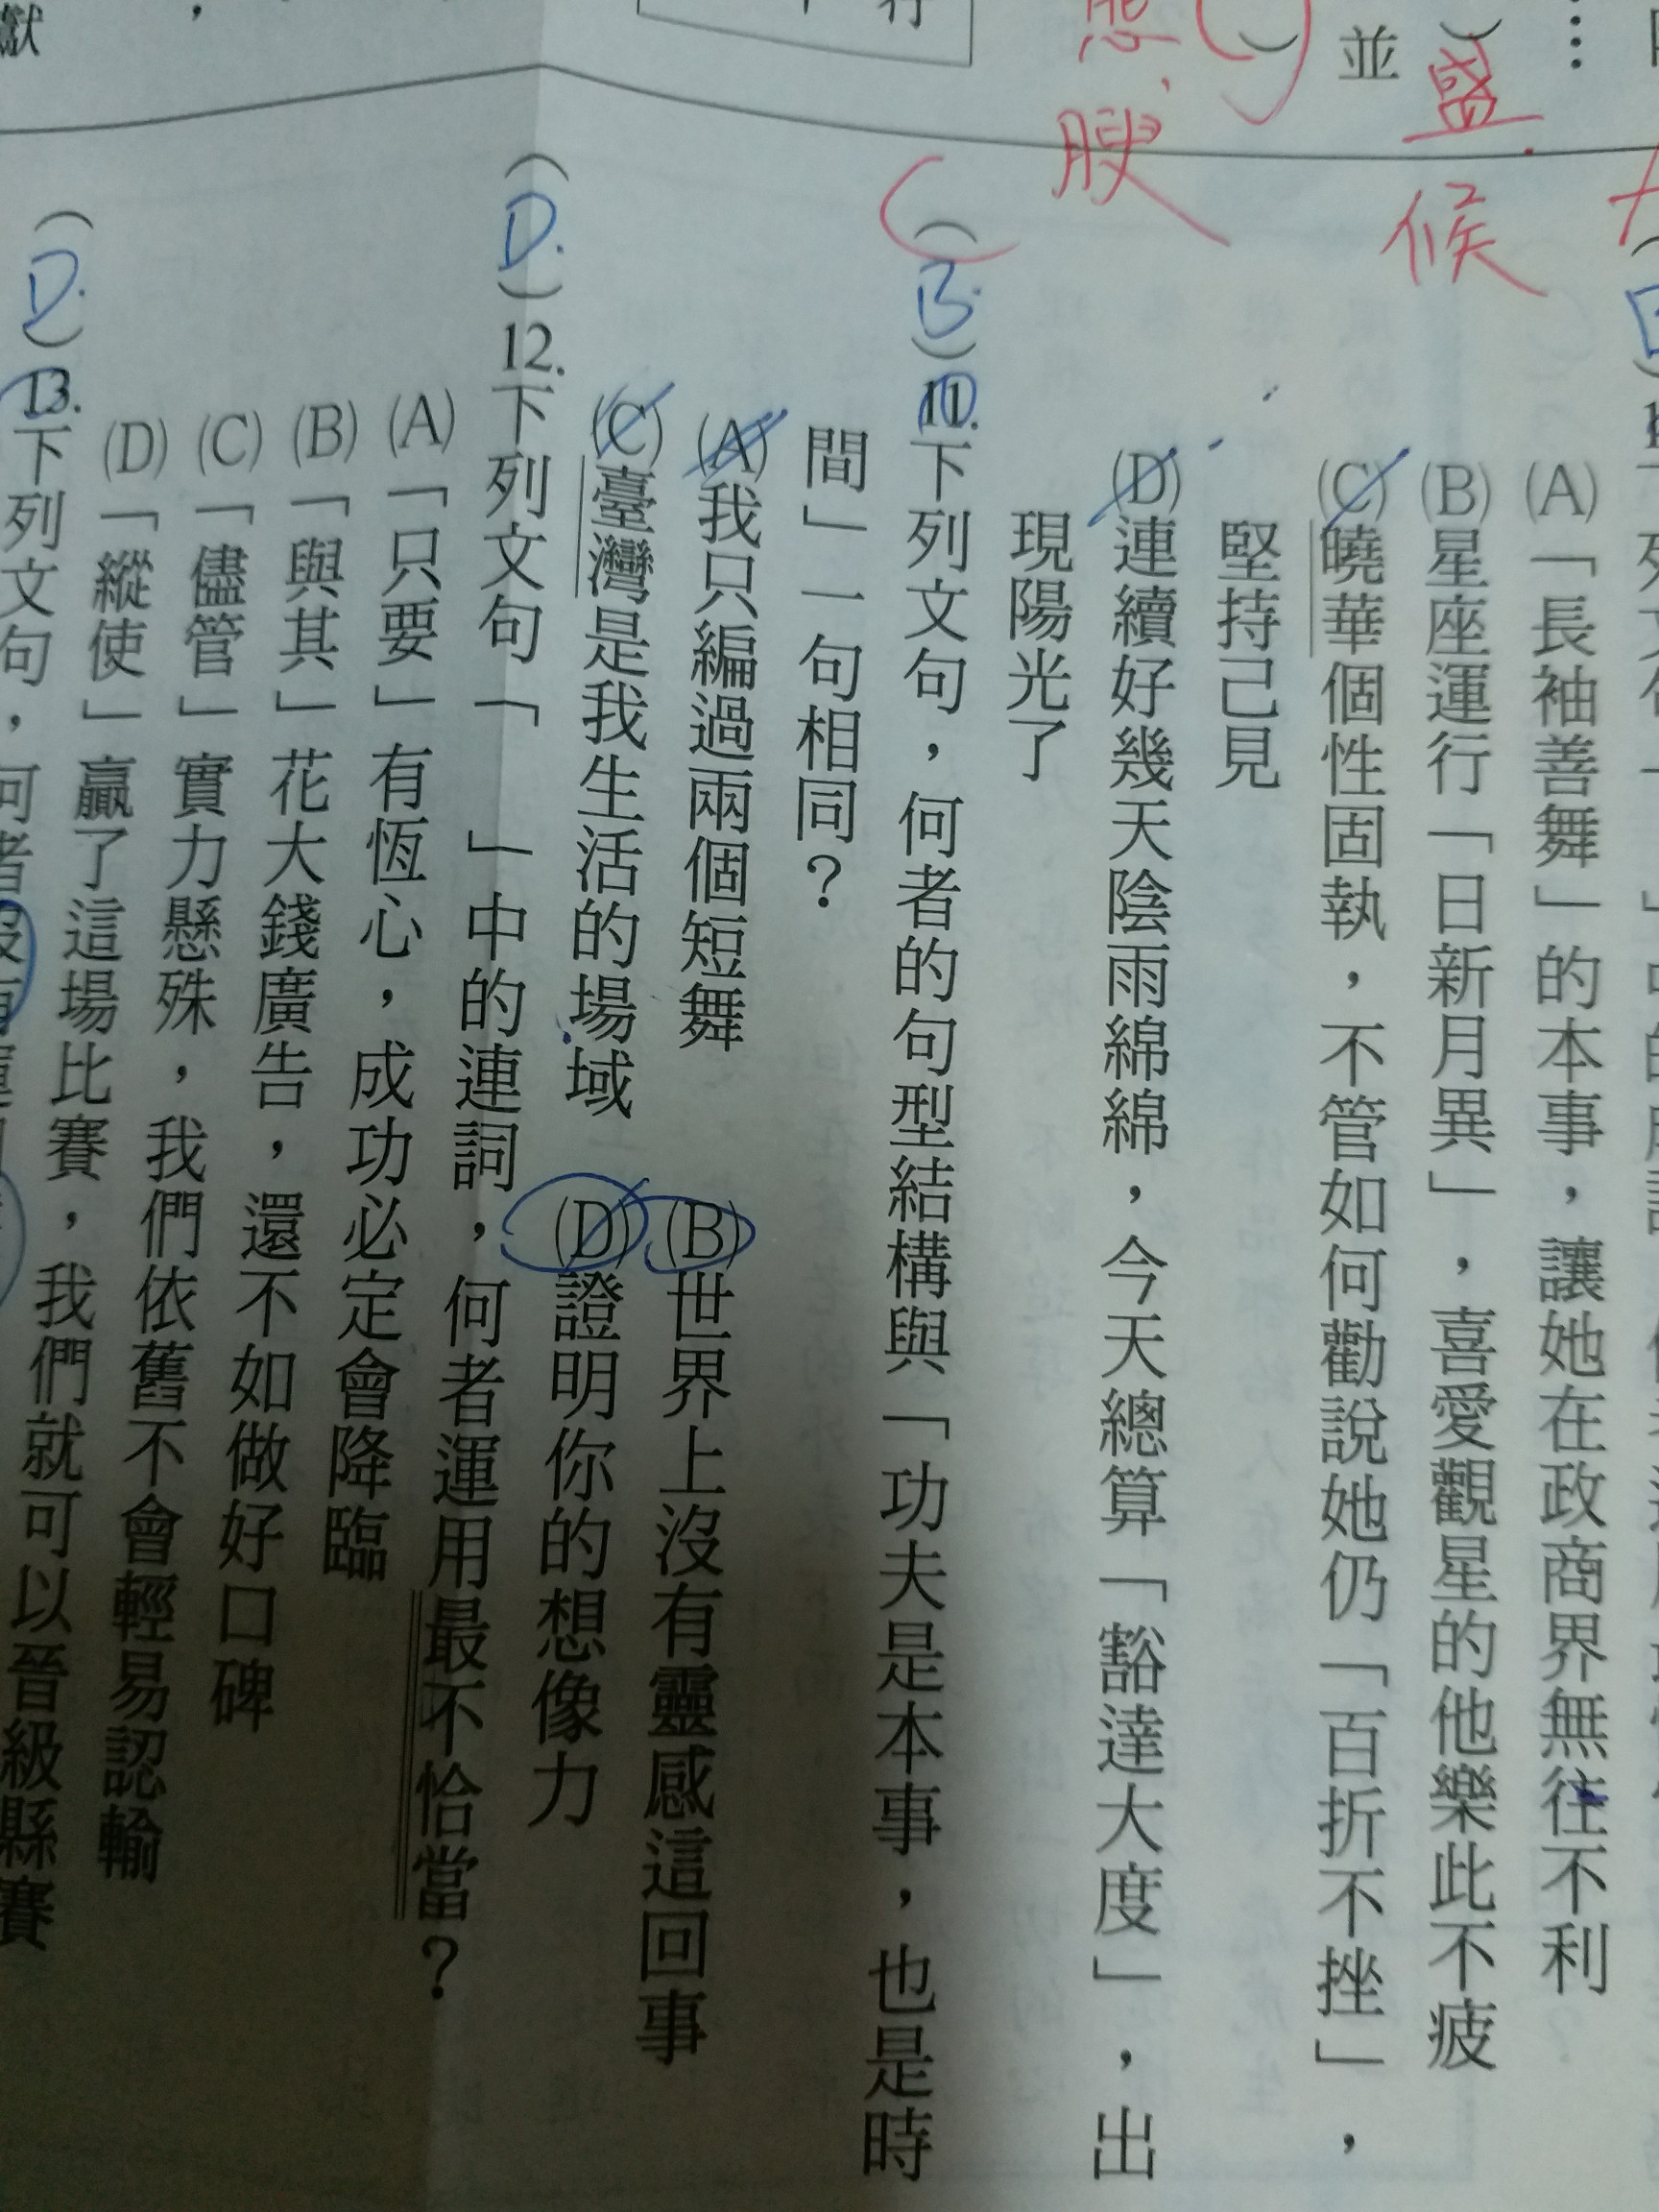 …
並
盛
候
態、
腴
行
獻
，
(A)「長袖善舞」的本事，讓她在政商界無往不利
(B)星座運行「日新月異」，喜愛觀星的他樂此不疲
(C)曉華個性固執，不管如何勸說她仍「百折不挫」，
堅持己見
(D)連續好幾天陰雨綿綿，今天總算「豁達大度」，出
現陽光了
C
(B)11.下列文句，何者的句型結構與「功夫是本事，也是時
間」一句相同？
(A)我只編過兩個短舞 (B)世界上沒有靈感這回事
(C)臺灣是我生活的場域 (D)證明你的想像力
(D.)12.下列文句「 」中的連詞，何者運用最不恰當？
(A)「只要」有恆心，成功必定會降臨
(B)「與其」花大錢廣告，還不如做好口碑
(C)「儘管」實力懸殊，我們依舊不會輕易認輸
(D)「縱使」贏了這場比賽，我們就可以晉級縣賽
(D.)13.下列文句，何者沒有運用